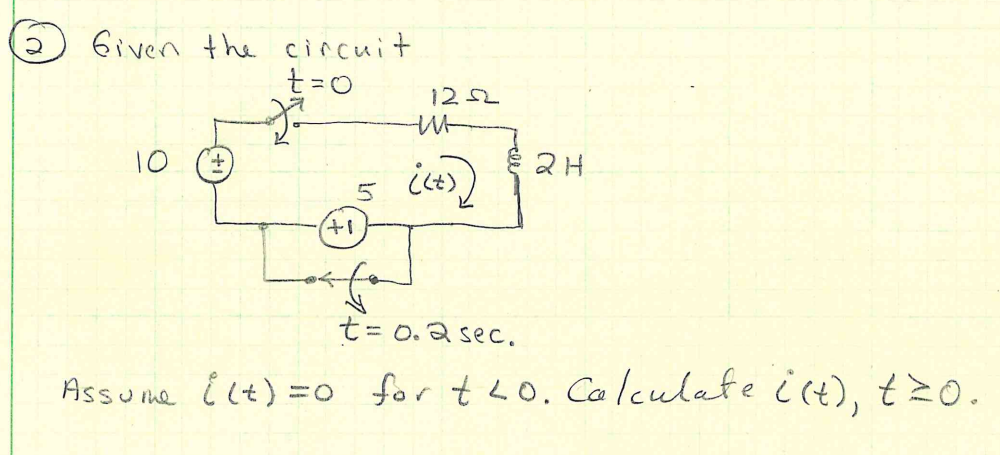 2 Given the circuit
t=0
12Ω
10
±
i(t)
2H
5
+|
t=0.2sec.
Assume i(t)=0 for t<0. Calculate i(t), t≥0.